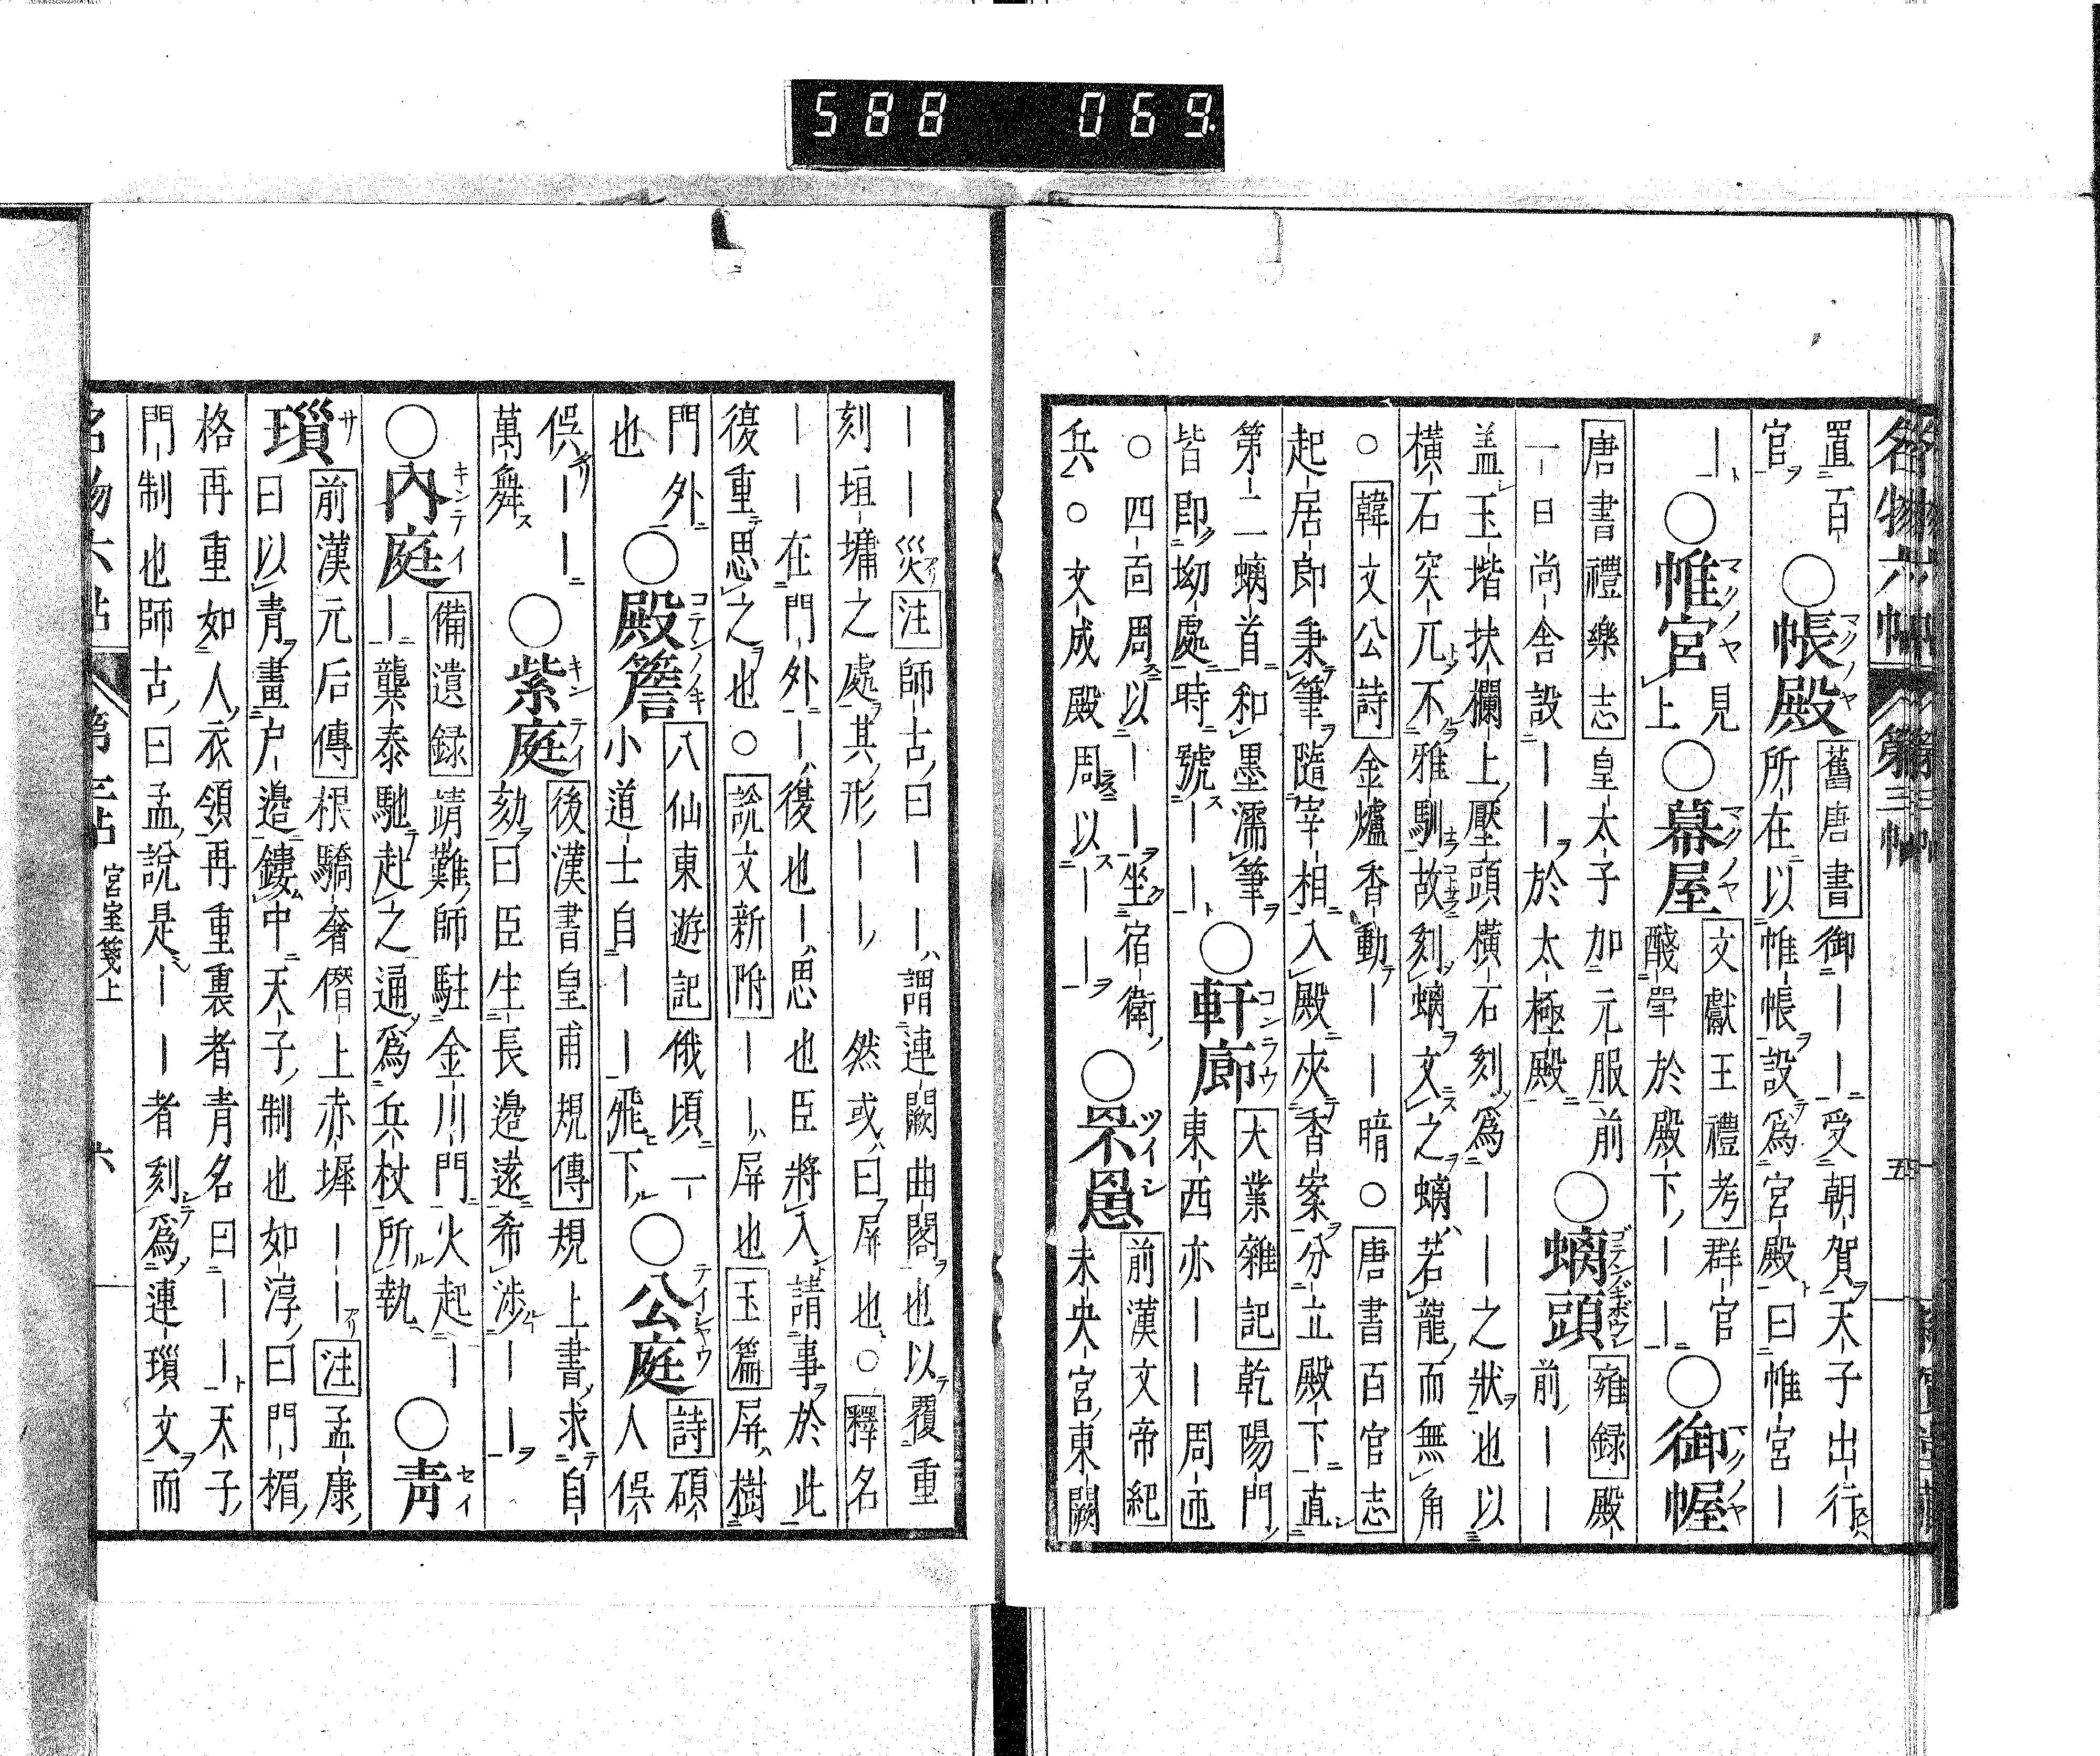 588 069.
名物六帖 第三帖 五
置百
官 ○帳殿 舊唐書 御｜｜受朝賀天子出行
所在以帷帳設爲宮殿曰帷宮｜
｜ ○帷宮 見
上 ○幕屋 文獻王禮考 群官
醆斝於殿下｜｜ ○御幄
唐書禮樂志 皇太子加元服前
一日尚舍設｜｜於太極殿 ○螭頭 雍録 殿
前｜｜
盖玉堦扶欄上壓頭橫石刻爲｜｜之狀也以
橫石突兀不雅馴故刻螭文之螭若龍而無角
○ 韓文公詩 金爐香動｜｜暗○ 唐書百官志
起居郎秉筆隨宰相入殿夾香案分立殿下直
第二螭首和墨濡筆
皆即坳處時號｜｜ ○軒廊 大業雜記 乾陽門
東西亦｜｜周迊
○四面周以｜｜坐宿衛
兵○文成殿周以｜｜ ○罘罳 前漢文帝紀
未央宮東闕
｜｜災 注 師古曰｜｜謂連闕曲閣也以覆重
刻垣墉之處其形｜｜然或曰屏也○ 釋名
｜｜在門外｜復也｜思也臣將入請事於此
復重思之也○ 說文新附 ｜｜屏也 玉篇 屏樹
門外
也 ○殿簷 八仙東遊記 俄頃一
小道士自｜｜飛下 ○公庭 詩 碩
人俁
俁｜｜
萬舞 ○紫庭 後漢書皇甫規傳 規上書求自
劾曰臣生長邊遠希涉｜｜
○內庭 備遺録 靖難師駐金川門火起｜
｜龔泰馳赴之通爲兵杖所執 ○青
瑣 前漢元后傳 根驕奢僭上赤墀｜｜ 注 孟康
曰以青畫户邉鏤中天子制也如淳曰門楣
格再重如人衣領再重裏者青名曰｜｜天子
門制也師古曰孟說是｜｜者刻爲連瑣文而
名物六帖 第三帖 宮室箋上 六